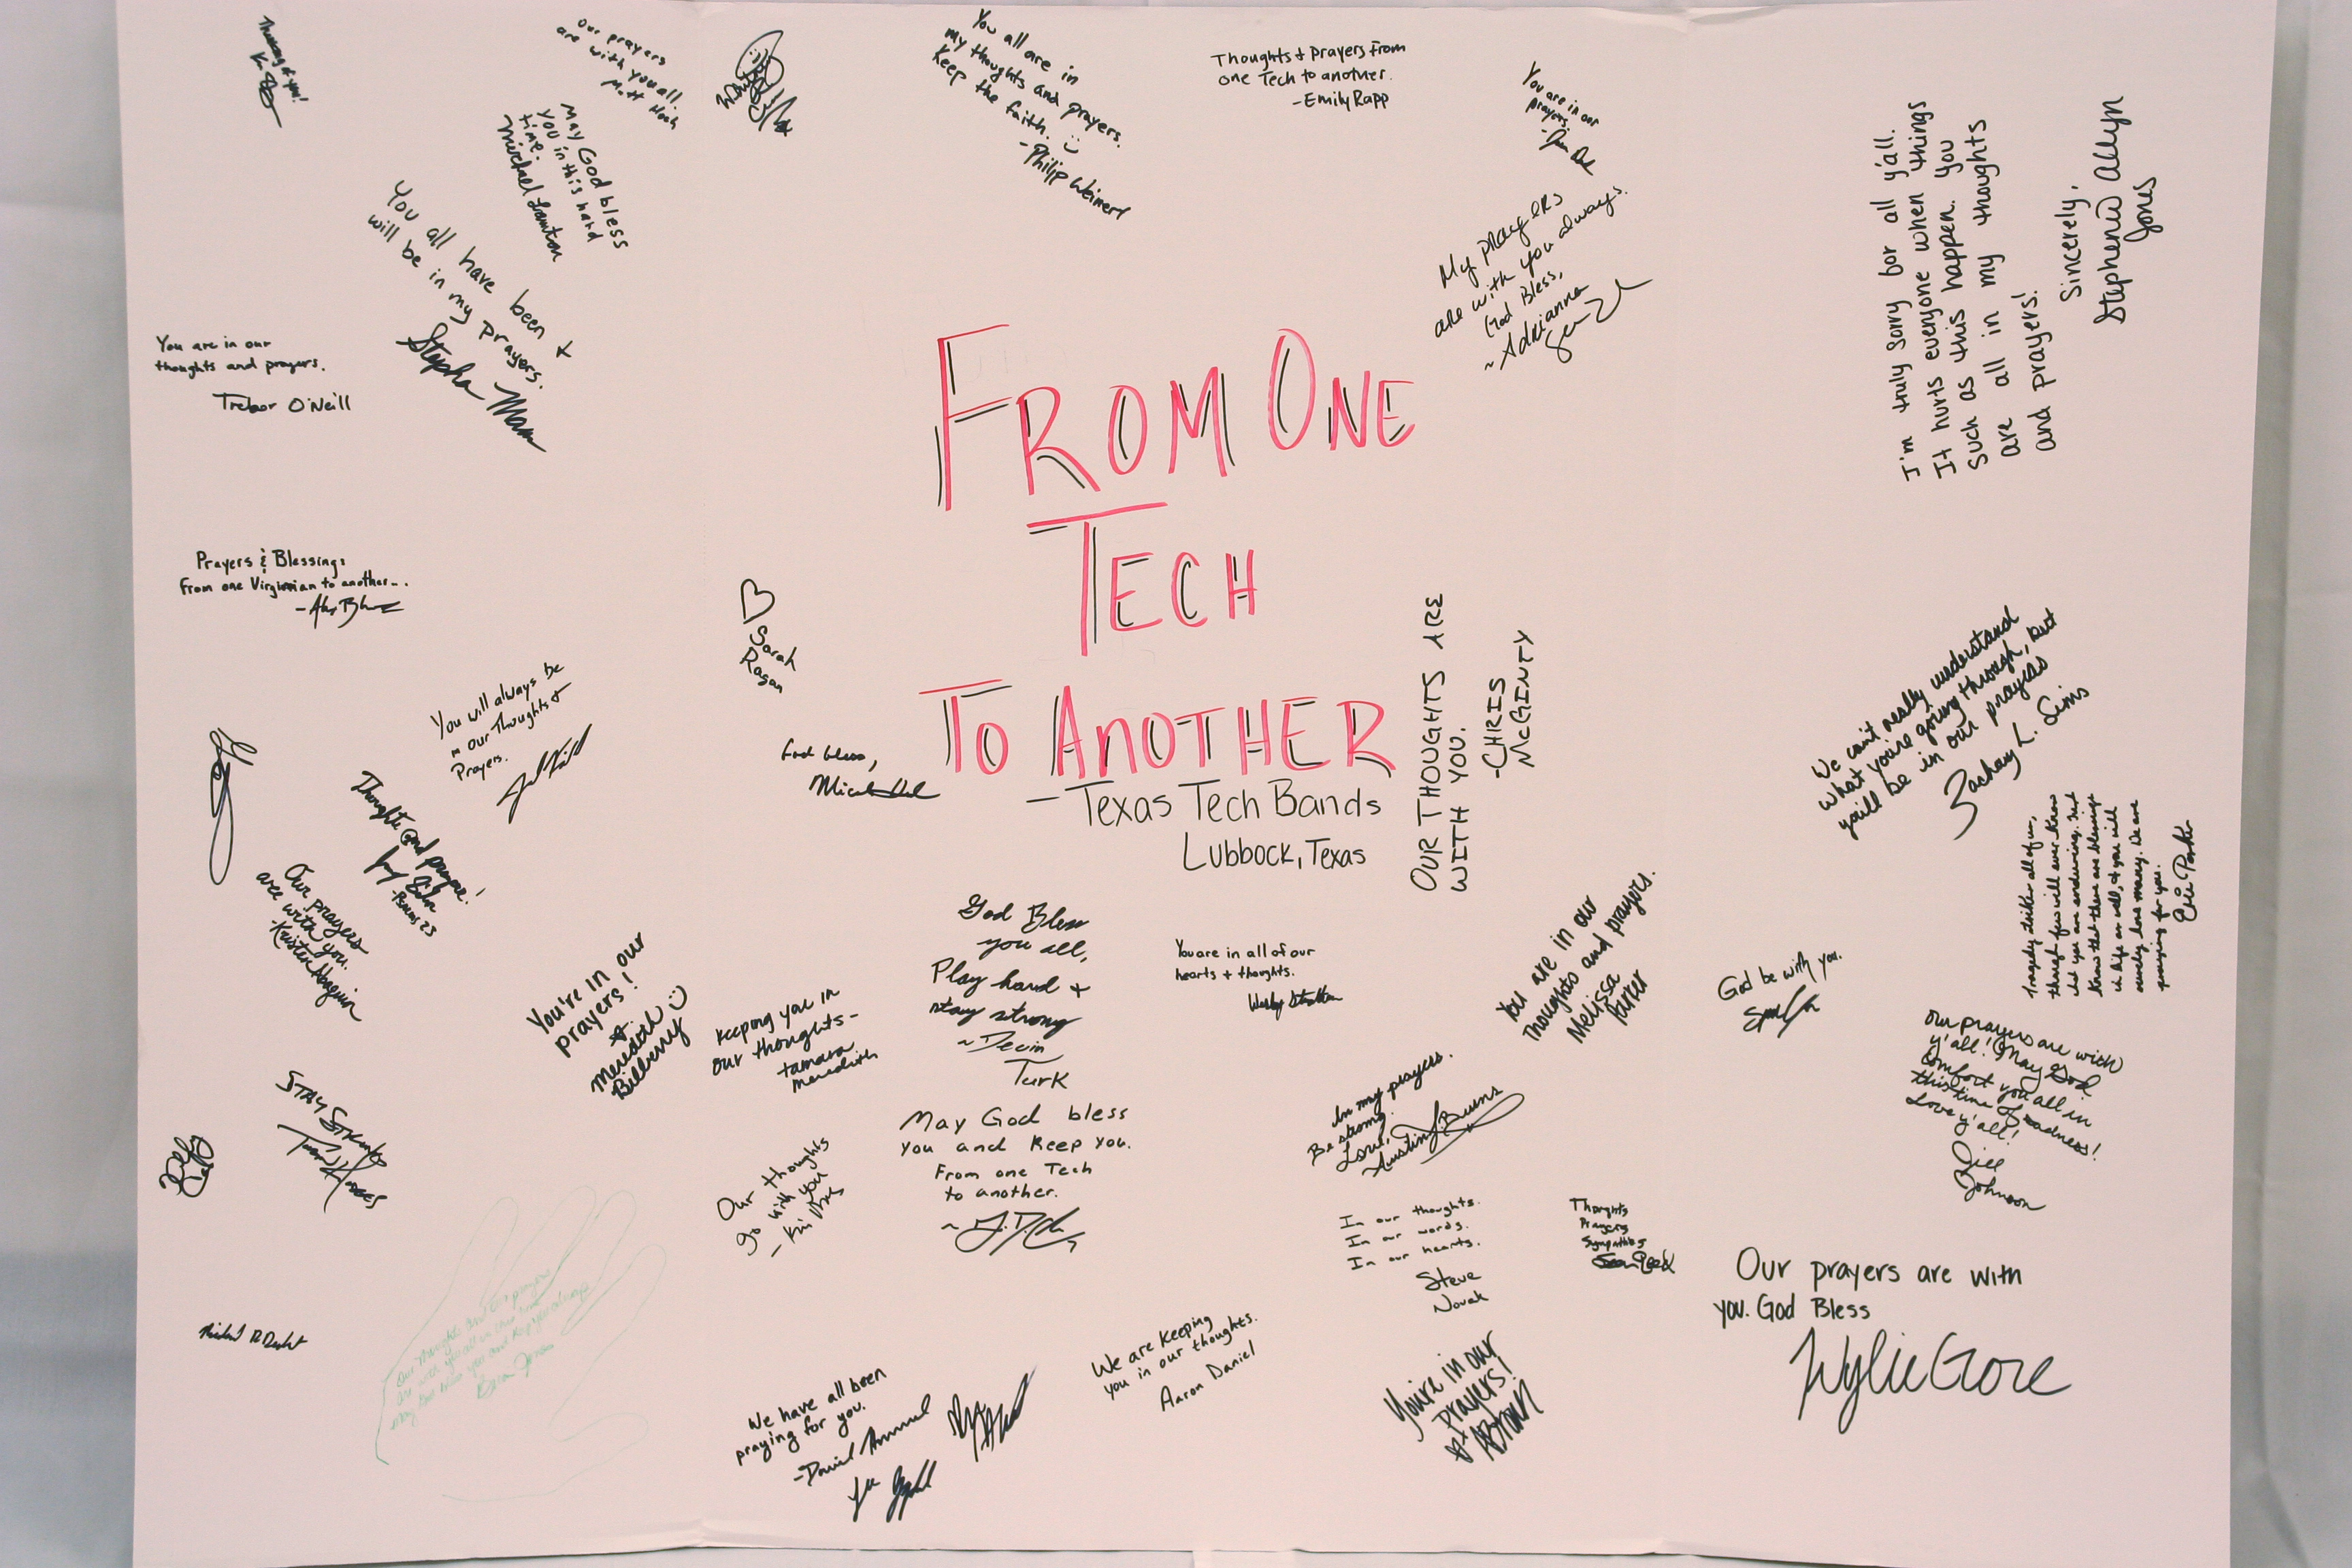 Thinking of you!
Our prayers
are with you all.
Matt
You all are in
my thoughts and prayers.
Keep the faith. :)
-Philip Weinert
Thoughts + prayers from
one Tech to another.
-Emily Rapp
You are in our
prayers.
May God bless
you in this hard
time.
Michael
You all have been +
will be in my prayers.
My prayers
are with you always.
God Bless,
~Adrianna
I'm truly sorry for all y'all.
It hurts everyone when things
such as this happen. You
are all in my thoughts
and prayers!
Sincerely,
Stephenie Allyn
Jones
You are in our
thoughts and prayers.
Trebor O'Neill
FROM ONE
TECH
TO ANOTHER
-Texas Tech Bands
Lubbock, Texas
Prayers & Blessings
From one Virginian to another...
♡
Sarah
Ragan
OUR THOUGHTS ARE
WITH YOU.
-CHRIS
McGINTY
We can't really understand
what you're going through, but
you'll be in our prayers
Zachary L. Sims
You will always be
in our Thoughts +
Prayers.
God bless,
Thoughts and prayers!
-Psalms 23
Our prayers
are with you.
-Kristen
Tragedy strikes all of us,
though few will ever know
what you are enduring. Just
know that there are blessings
in life as well, & you will
surely have many. We are
praying for you.
Erin Parker
You're in our
prayers!
Meredith :)
Billberry
Keeping you in
our thoughts-
Tamara
Meredith
God Bless
you all,
Play hard +
stay strong
~Devin
Turk
You are in all of our
hearts + thoughts.
You are in our
thoughts and prayers.
Melissa
Parker
God be with you.
Our prayers are with
y'all! May God
comfort you all in
this time of sadness!
Love y'all!
Jill
Johnson
STAY STRONG
In my prayers.
Be strong.
Love,
Austin J. Burns
May God bless
you and Keep you.
From one Tech
to another.
Our thoughts
go with you
-Kim
In our thoughts.
In our words.
In our hearts.
Steve
Novak
Thoughts
Prayers
Sympathies
Our prayers are with
you. God Bless
Wylie Gore
Our thoughts and our prayers
are with you all in this time
may God bless you and keep you always
We have all been
praying for you.
-Daniel
We are keeping
you in our thoughts.
Aaron Daniel
You're in our
prayers!